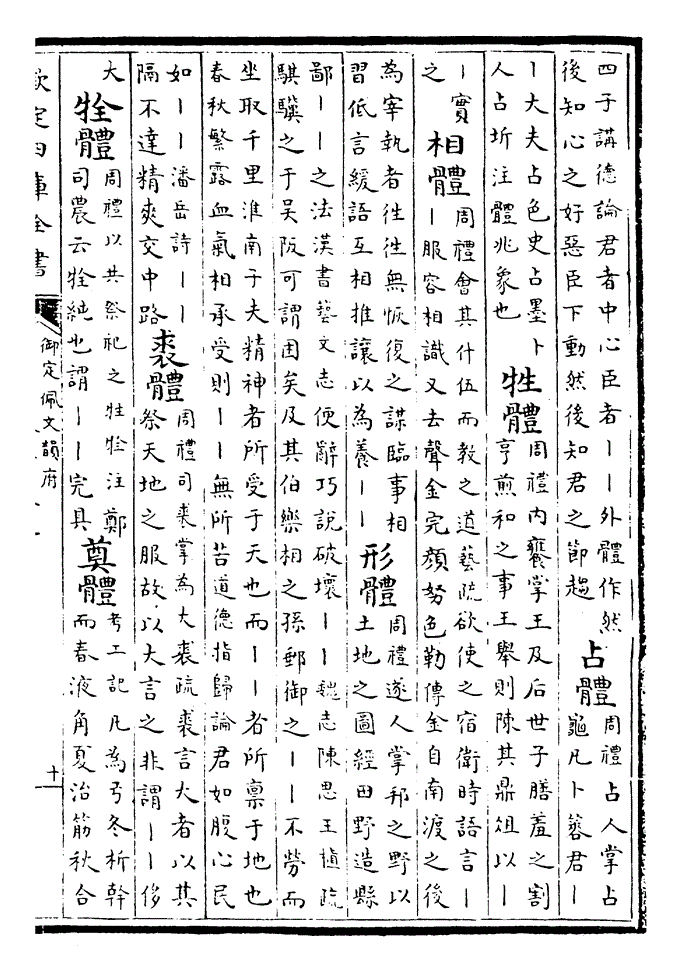 四子講德論君者中心臣者丨丨外體作然
後知心之好惡臣下動然後知君之節趨
占體
周禮占人掌占
龜凡卜簭君丨
丨大夫占色史占墨卜
人占坼注體兆象也
牲體
周禮內饔掌王及后世子膳羞之割
亨煎和之事王舉則陳其鼎俎以丨
丨實
之
相體
周禮會其什伍而教之道藝疏欲使之宿衛時語言丨
丨服容相識又去聲金完顏努色勒傳金自南渡之後
為宰執者往往無恢復之謀臨事相
習低言緩語互相推讓以為養丨丨
形體
周禮遂人掌邦之野以
土地之圖經田野造縣
鄙丨丨之法漢書藝文志便辭巧說破壞丨丨魏志陳思王植疏
騏驥之于吳阪可謂困矣及其伯樂相之孫郵御之丨丨不勞而
坐取千里淮南子夫精神者所受于天也而丨丨者所禀于地也
春秋繁露血氣相承受則丨丨無所苦道德指歸論君如腹心民
如丨丨潘岳詩丨丨
隔不達精爽交中路
裘體
周禮司裘掌為大裘疏裘言大者以其
祭天地之服故以大言之非謂丨丨侈
大
牷體
周禮以共祭祀之牲牷注鄭
司農云牷純也謂丨丨完具
奠體
考工記凡為弓冬析幹
而春液角夏治筋秋合
欽定四庫全書
御定佩文韻府
十